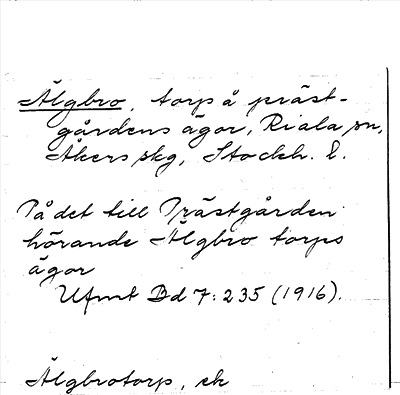 Älgbro, torp å präst-
gårdens ägor, Riala sn,
Åkers skg, Stockh. l.
På det till Prästgården
hörande Älgbro torps
ägor
Ufmt Bd 7: 235 (1916).
Älgbrotorp, ek